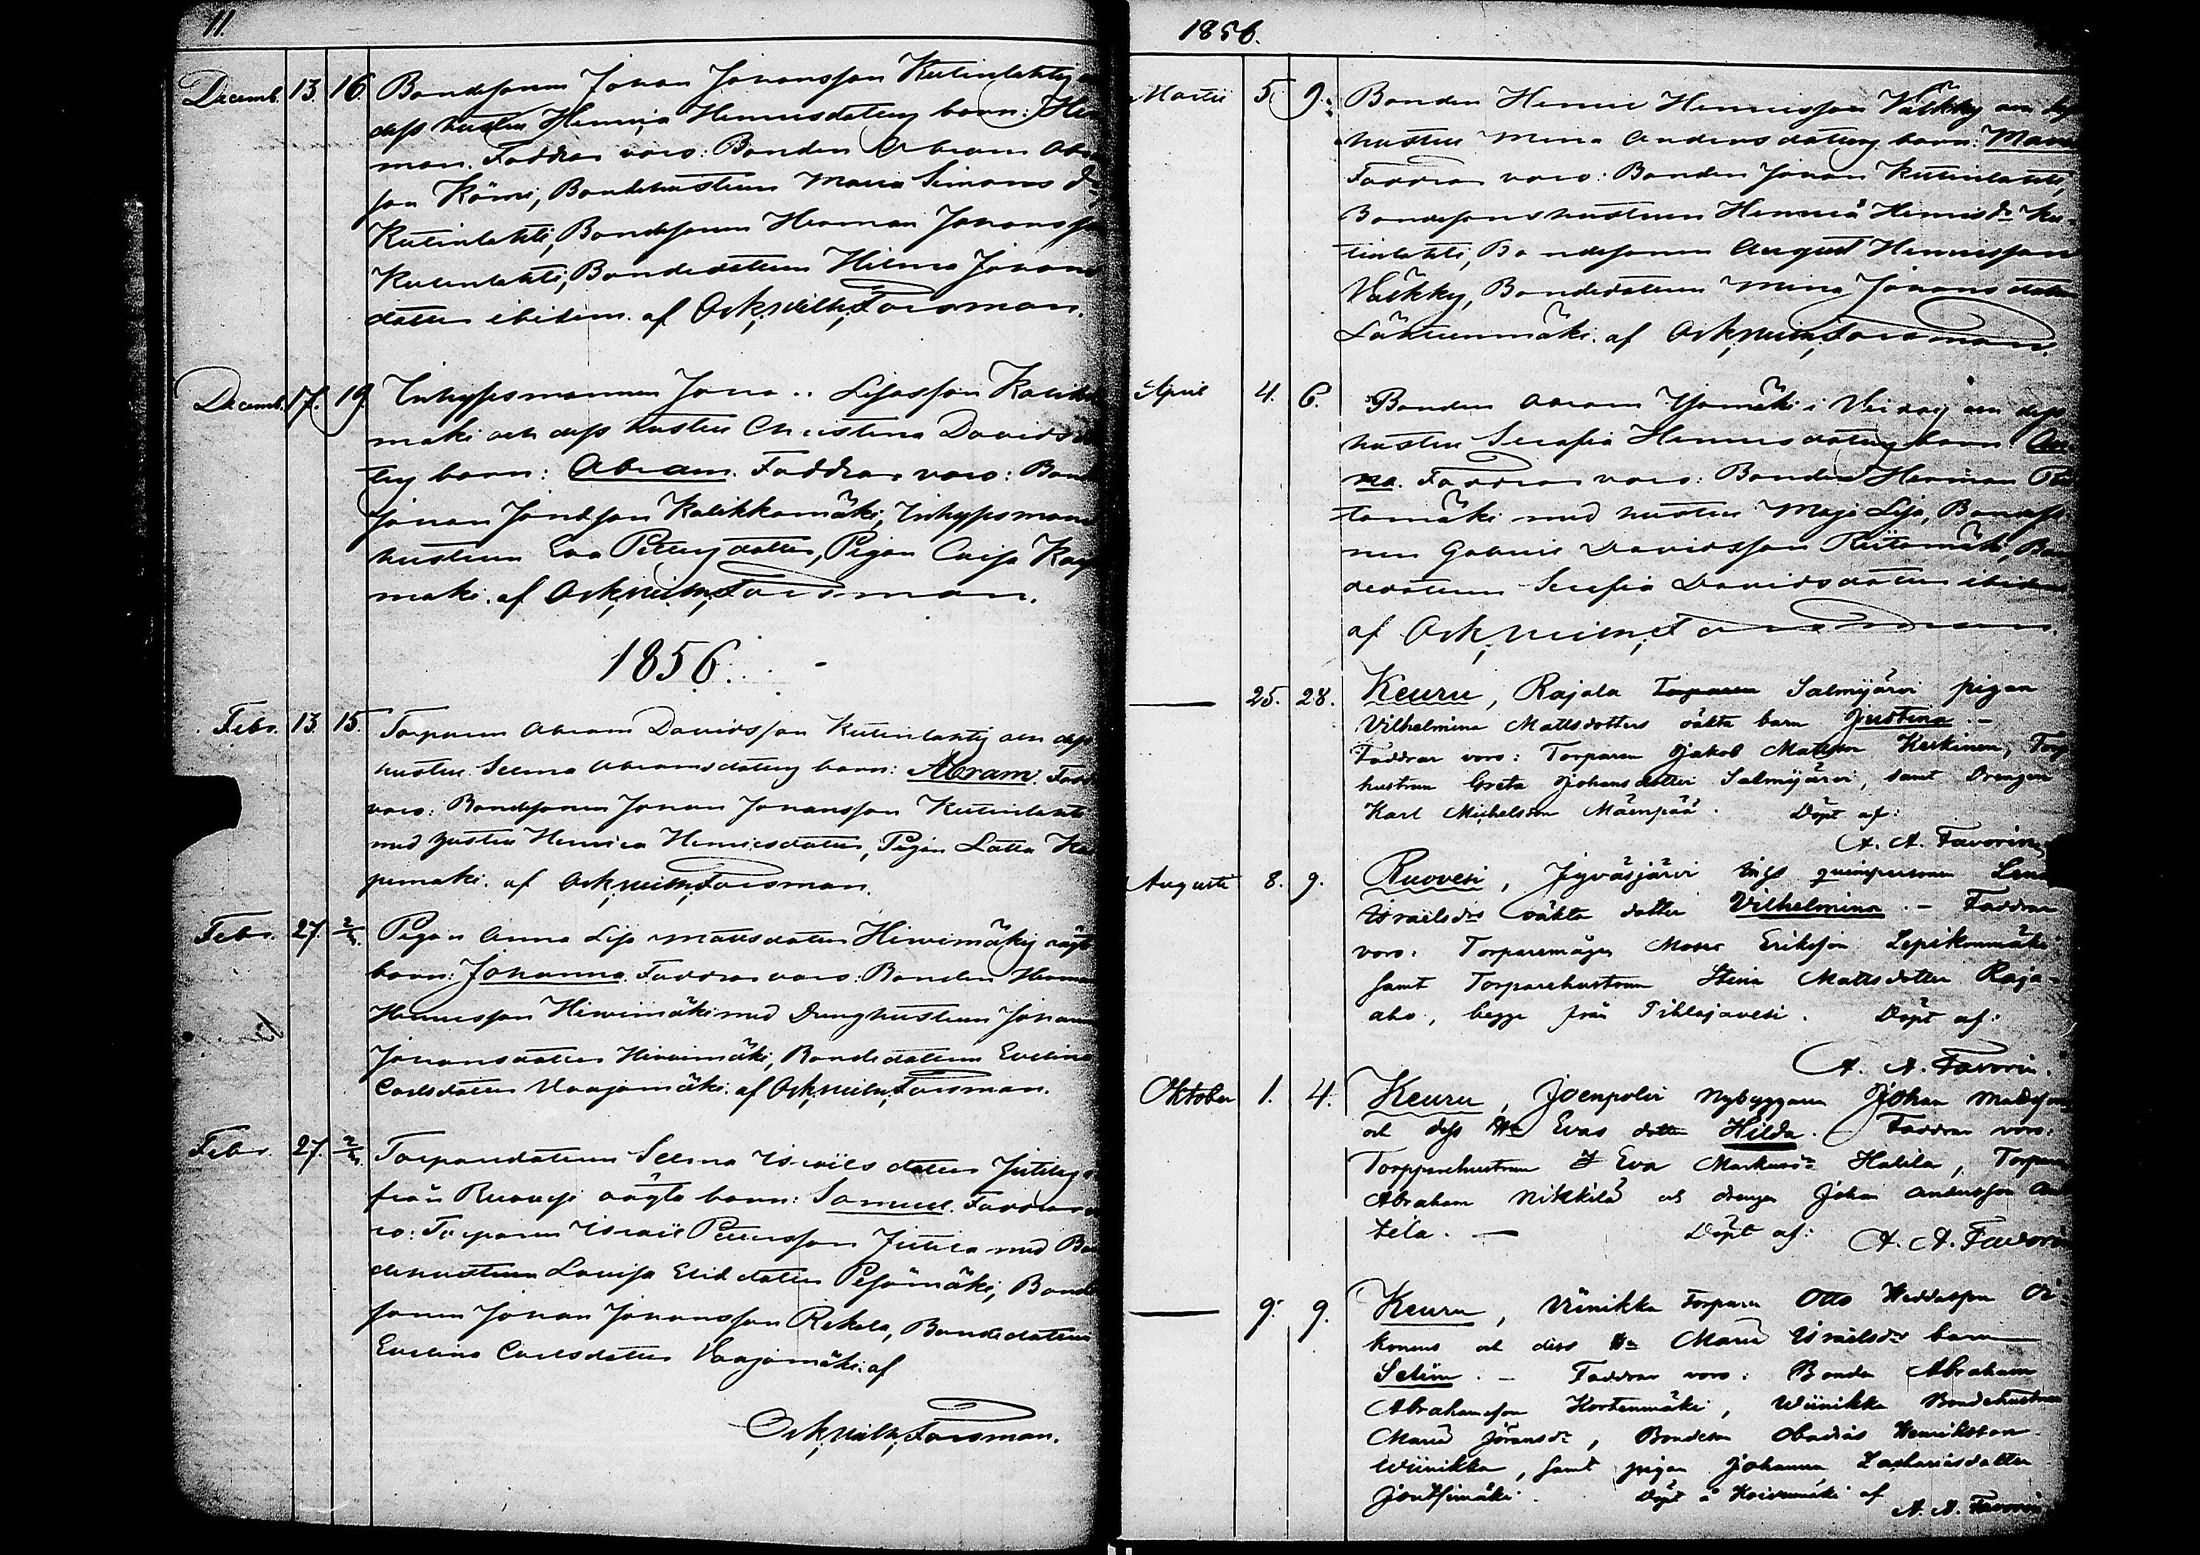 11.
Decemb. 13. 16. Bondesonen Johan Johansson Kutinlahtis
dess hustru Henrica Henricsdotters barn: Her
man. Faddrar voro: Bonden Abram Abra
son Kömi, Bondehustrun Maria Simons dr
Kutinlahti, Bondesonen Herman Johansson
Kutinlahti, Bondedottern Hilma Johans
dotter ibidem. af Osk. Wilh. Forsman.
Decemb. 17. 19. Inhysesmannen Jona .. Lisasson Kalikka
mäki och dess hustru Christina Davidsdot
ters barn: Abram. Faddrar voro: Bond
Johan Kalikkomäki, Inhysesmans
hustrun Eva dotter, Pigan Caisa
maki. af Osk. Wilh. Forsman.
1856.
Febr. 13. 15. Torparen Abram Davidsson Kutinlahtis och dess
hustru Selma Abramsdotters barn: Abram. Fadd
voro: Bondesonen Johan Johansson Kutinlahti
med hustru Henrica Henricsdotter, Pigan Lotta
pimaki. af Osk. Wilh. Forsman.
Febr. 27. 2/3. Pigan Anna Lisa Mattsdotter Hirvimäkis oägta
barn: Johanna. Faddrar voro: Bonden Herman
Henricsson Hirvimäki med Dränghustrun Johanna
Johansdotter Hirvimäki, Bondedottern Evelina
Carlsdotter Vaajamäki. af Osk. Wilh. Forsman.
Febr. 27. 2/3. Torparedottern Selma Israelsdotter
från Ruovesi oägta barn: Samuel. Faddrar vo
ro: Torparen Israel Pettersson med Bon
dehustrun Lovisa dotter Pesämäki, Bonde
sonen Johan Johansson Rekola, Bondedottern
Evelina Carlsdotter Vaajamäki. af
Osk. Wilh. Forsman.
1856.
Martii 5. 9. Bonden Henric Henricsson Väkky och dess
hustru Mina Andersdotters barn: Maria
Faddrar voro: Bonden Johan Kutinlahti,
Bondesonshustrun Henrica Henricsdr Ku-
tinlahti, Bondesonen August Henricsson
Väkky, Bondedottern Mina Johansdotter
Lähteenmäki. af Osk. Wilh. Forsman.
April 4. 6. Bonden Abram i och dess
hustru Serafia Henricsdotters barn An
na. Faddrar voro: Bonden Herman
tamäki med hustru Maja Lisa, Bondeso
nen Gabriel Davidsson Riitamäki, Bon
dedottern Serafia Davidsdotter ibidem
af Osk. Wilh. Forsman.
— 25. 28. Keuru, Rajala Torparen Salmijärvi pigan
Vilhelmina Mattsdotters oäkta barn Justina. —
Faddrar voro: Torparen Jakob Matsson Keskinen, Torp
hustrun Greta Johansdotter Salmijärvi, samt Drengen
Karl Michelsson Mäenpää. Döpt af:
A. A. Favorin.
Augusti 8. 9. Ruovesi, Jyväsjärvi tings qvinspersonen Lena
Israelsdrs oäkta dotter Vilhelmina. — Faddrar
voro: Torparemågen Moses Eriksson Lepikonmäki
samt Torparehustrun Stina Mattsdotter Raja-
aho, begge från Pihlajavesi. Döpt af:
A. A. Favorin.
Oktober 1. 4. Keuru, Joenpolvi Nybyggaren Johan Mattsson
och dess Hu Evas dotter Hilda. — Faddrar voro:
Torpparehustrun Eva Markusdr Halila, Torparen
Abraham Nikkilä och drengen Johan Andersson An
tila. — Döpt af: A. A. Favorin
— 9. 9. Keuru, Viinikka Torparen Otto Oi-
konens och dess Hu Maria Israelsdrs barn
Selim. — Faddrar voro: Bonden Abraham
Abrahamsson Hortenmäki, Wiinikka Bondehustrun
Maria Jöransdr, Bondeson Obadias Henriksson
Wiinikka, samt pigan Johanna Zachariasdotter
Joutsimäki. Döpt å Koivumäki af
A. A. Favorin